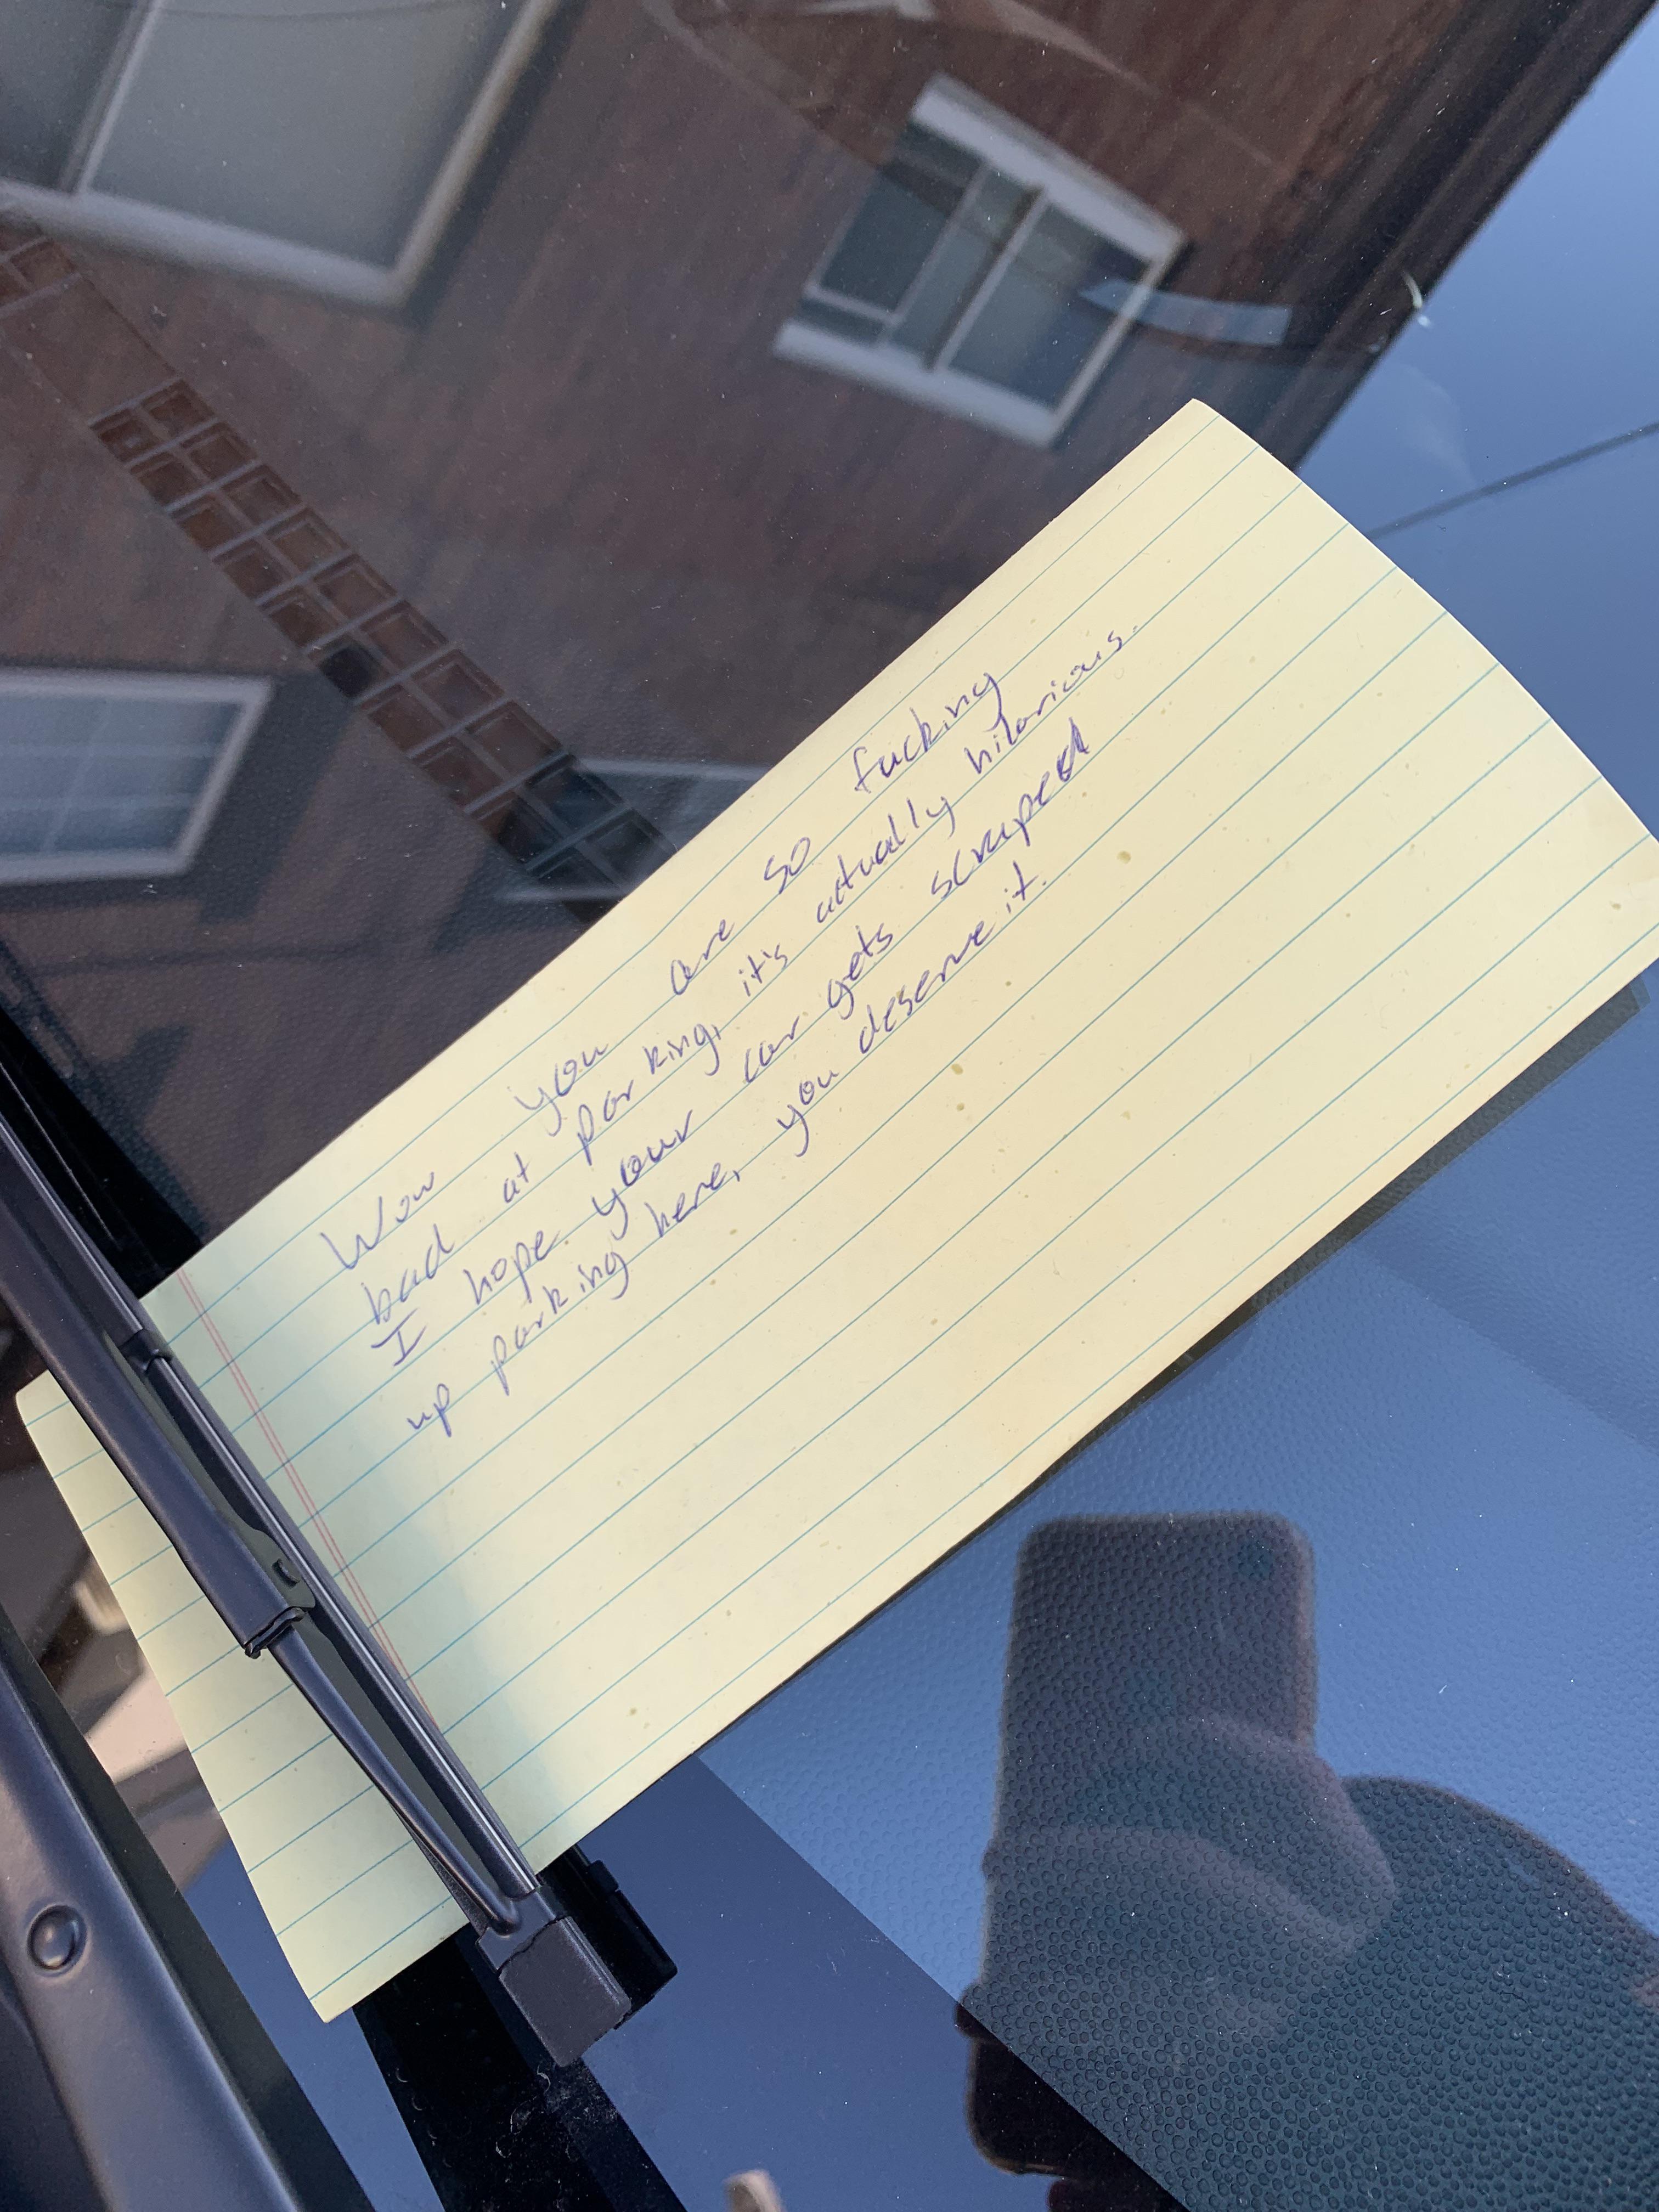 Wow you are so fucking
bad at parking, it's actually hilarious.
I hope your car gets scraped
up parking here, you deserve it.